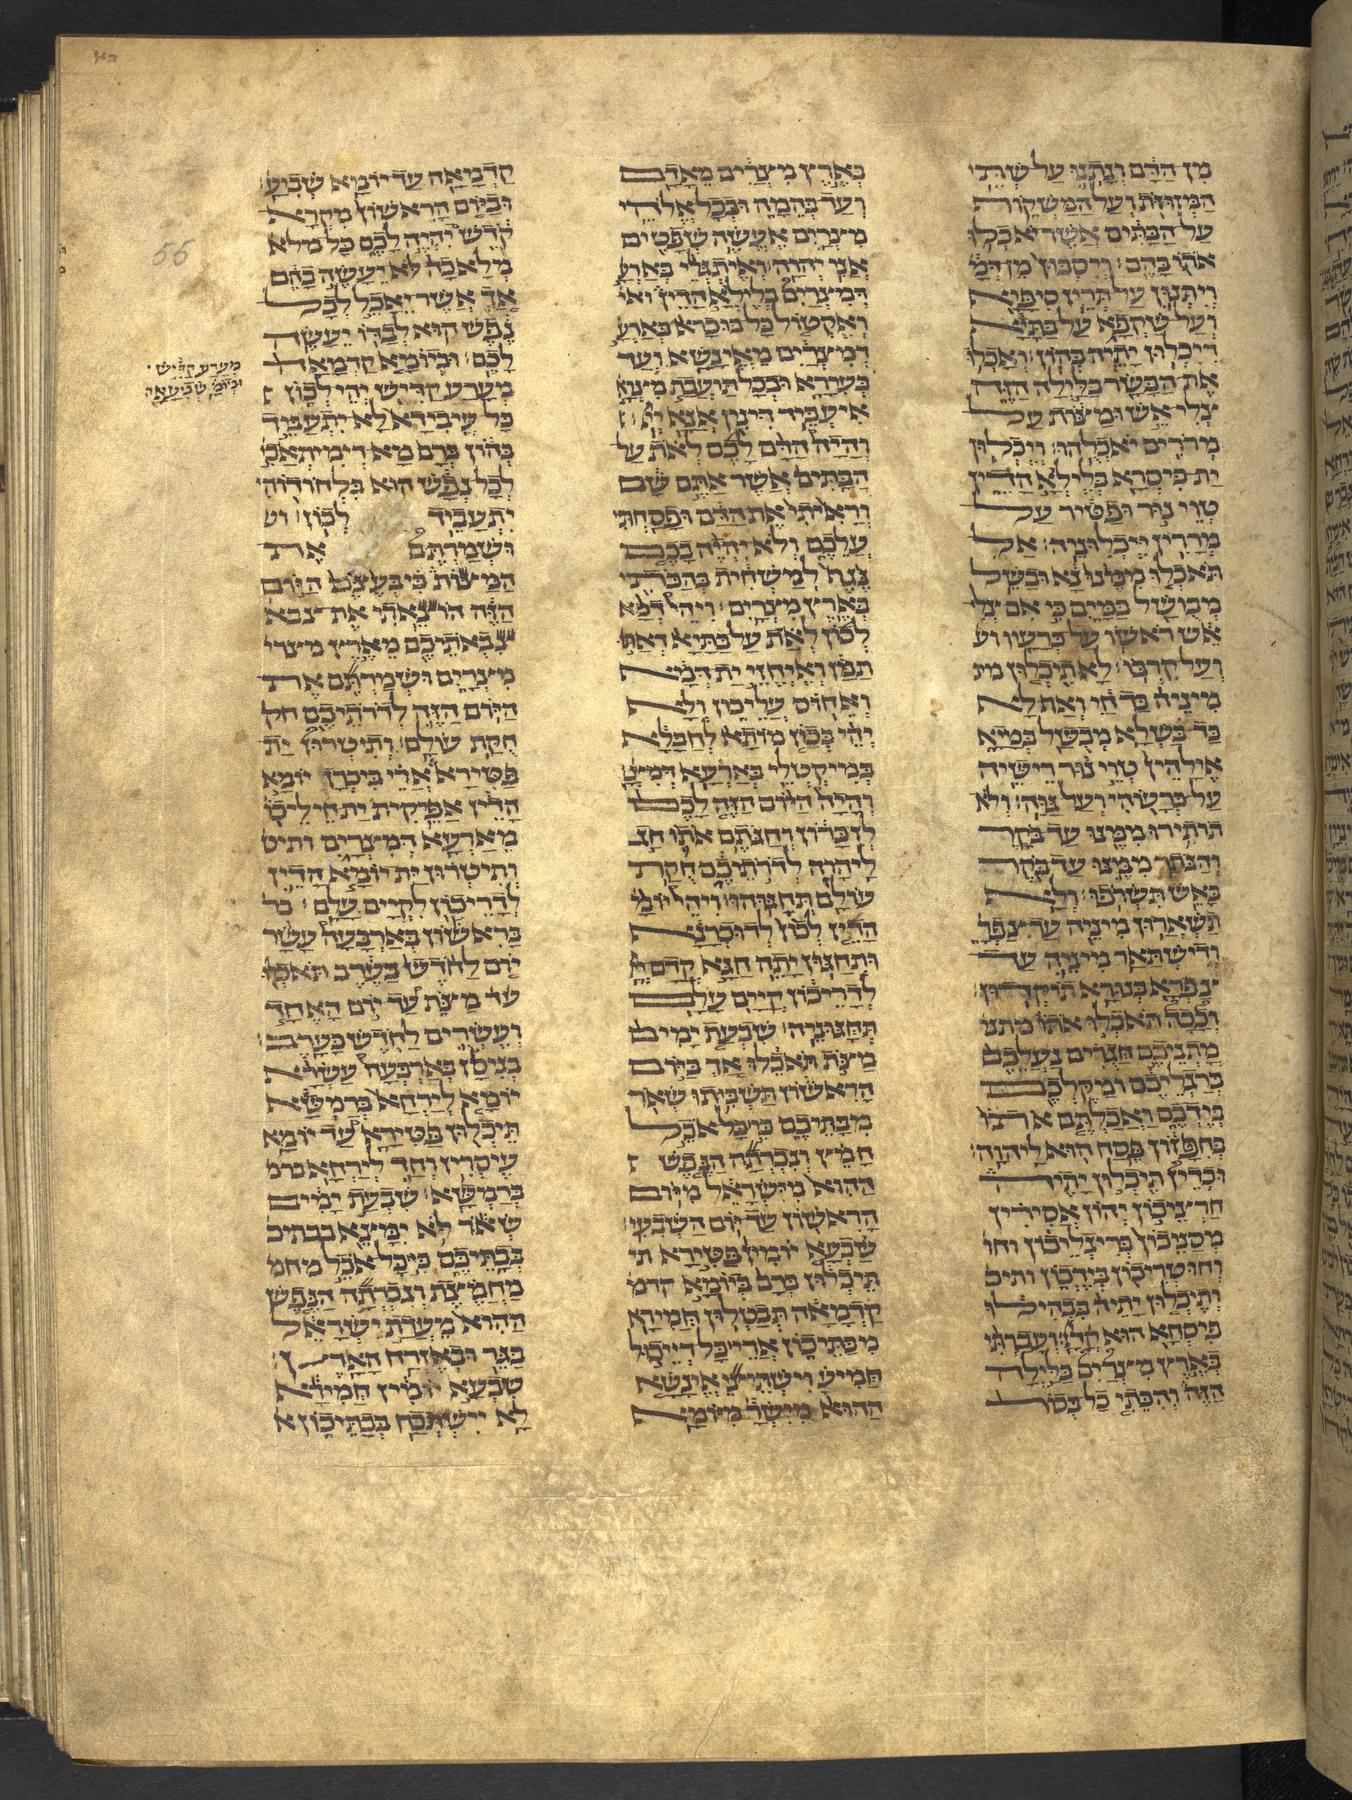 מִן הַדָּם וְנָתְנוּ עַל שְׁתֵּי
הַמְּזוּזֹת וְעַל הַמַּשְׁקוֹף
עַל הַבָּתִּים אֲשֶׁר יֹאכְלוּ
אֹתוֹ בָּהֶם וְיִסְבוּן מִן דְּמָא
וְיִתְּנוּן עַל תְּרֵין סִיפַּיָּא
וְעַל שָׁקְפָא עַל בָּתַּיָּא
דְּיֵיכְלוּן יָתֵיהּ בְּהוֹן וְאָכְלוּ
אֶת הַבָּשָׂר בַּלַּיְלָה הַזֶּה
צְלִי אֵשׁ וּמַצּוֹת עַל
מְרֹרִים יֹאכְלֻהוּ וְיֵיכְלוּן
יַת בִּיסְרָא בְּלֵילְיָא הָדֵין
טְוֵי נוּר וּפַטִּיר עַל
מְרָרִין יֵיכְלוּנֵיהּ אַל
תֹּאכְלוּ מִמֶּנּוּ נָא וּבָשֵׁל
מְבֻשָּׁל בַּמָּיִם כִּי אִם צְלִי
אֵשׁ רֹאשׁוֹ עַל כְּרָעָיו וע
וְעַל קִרְבּוֹ לָא תֵיכְלוּן מינ
מִינֵּיהּ כַּד חַי וְאַף לָא
כַּד בַּשָּׁלָא מְבֻשַּׁל בְּמַיָּא
אֱלָהֵין טְוֵי נוּר רֵישֵׁיהּ
עַל כְּרָעוֹהִי וְעַל גַּוֵּיהּ וְלֹא
תוֹתִירוּ מִמֶּנּוּ עַד בֹּקֶר
וְהַנֹּתָר מִמֶּנּוּ עַד בֹּקֶר
בָּאֵשׁ תִּשְׂרֹפוּ וְלָא
תַשְׁאֲרוּן מִינֵּיהּ עַד צַפְרָ
וּדְיִשְׁתְּאַר מִינֵּיהּ עַד
צַפְרָא בְּנוּרָא תֵּיקְדוּן
וְכָכָה תֹּאכְלוּ אֹתוֹ מתנ
מָתְנֵיכֶם חֲגֻרִים נַעֲלֵיכֶם
בְּרַגְלֵיכֶם וּמַקֶּלְכֶם
בְּיֶדְכֶם וַאֲכַלְתֶּם אֹתוֹ
בְּחִפָּזוֹן פֶּסַח הוּא לַיהוָה
וּכְדֵין תֵּיכְלוּן יָתֵיהּ
חַרְצֵיכוֹן יְהוֹן אֲסִירִין
מְסָנֵיכוֹן בְּרִיגְלֵיכוֹן וחו
וְחוּטְרֵיכוֹן בְּיֶדְכוֹן ותיכ
וְתֵיכְלוּן יָתֵיהּ בִּבְהִילוּ
פִּיסְחָא הוּא קדם וְעָבַרְתִּי
בְאֶרֶץ מִצְרַיִם בַּלַּיְלָה
הַזֶּה וְהִכֵּיתִי כָל בְּכוֹר
בְּאֶרֶץ מִצְרַיִם מֵאָדָם
וְעַד בְּהֵמָה וּבְכָל אֱלֹהֵי
מִצְרַיִם אֶעֱשֶׂה שְׁפָטִים
אֲנִי יְהוָה וְאֶיתְגְּלֵי בְּאַרְעָ
דְּמִצְרַיִם בְּלֵילְיָא הָדֵין ואי
וְאֶקְטוֹל כָּל בּוּכְרָא בְּאַרְעָ
דְּמִצְרַיִם מֵאֵינָשָׁא וְעַד
בְּעִירָא וּבְכָל טַעֲוָת מִצְרָאֵ
אַעְבֵּיד דִּינִין אֲנָא יְיָ
וְהָיָה הַדָּם לָכֶם לְאֹת עַל
הַבָּתִּים אֲשֶׁר אַתֶּם שָׁם
וְרָאִיתִי אֶת הַדָּם וּפָסַחְתִּי
עֲלֵכֶם וְלֹא יִהְיֶה בָכֶם
נֶגֶף לְמַשְׁחִית בְּהַכֹּתִי
בְּאֶרֶץ מִצְרָיִם וִיהֵי דְּמָא
לְכוֹן לְאָת עַל בָּתַּיָּא דְּאַתּ
תַמָּן וְאֶחְזֵי יַת דְּמָא
וְאֵחוֹס עֲלֵיכוֹן וְלָא
יְהֵי בְּכוֹן מוֹתָא לְחַבָּלָא
בְּמִיקְטְלִי בְּאַרְעָא דְּמִצְרַ
וְהָיָה הַיּוֹם הַזֶּה לָכֶם
לְזִכָּרוֹן וְחַגֹּתֶם אֹתוֹ חַג
לַיהוָה לְדֹרֹתֵיכֶם חֻקַּת
עוֹלָם תְּחָגֻּהוּ וִיהֵי יוֹמָ
הָדֵין לְכוֹן לְדוּכְרָנָא
וּתְחַגּוּן יָתֵיהּ חַגָּא קֳדָם יְיָ
לְדָרֵיכוֹן קְיָים עָלַם
תְּחַגּוּנֵּיהּ שִׁבְעַת יָמִים
מַצּוֹת תֹּאכֵלוּ אַךְ בַּיּוֹם
הָרִאשׁוֹן תַּשְׁבִּיתוּ שְּׂאֹר
מִבָּתֵּיכֶם כִּי כָּל אֹכֵל
חָמֵץ וְנִכְרְתָה הַנֶּפֶשׁ
הַהִוא מִיִּשְׂרָאֵל מִיּוֹם
הָרִאשׁוֹן עַד יוֹם הַשְּׁבִעִי
שַׁבְעָא יוֹמִין פַּטִּירָא תי
תֵּיכְלוּן בְּרַם בְּיוֹמָא קדמ
קַדְמָאָה תְּבַטְּלוּן חֲמִירָא
מִבָּתֵּיכוֹן אֲרֵי כָּל דְּיֵיכוֹל
חֲמִיעַ וְיִשְׁתֵּיצֵי אֱנָשָׁא
הַהוּא מִיִּשְׂרָ מִיּוֹמָא
קַדְמָאָה עַד יוֹמָא שְׁבִיעָ
וּבַיּוֹם הָרִאשׁוֹן מִקְרָא
קֹדֶשׁ יִהְיֶה לָכֶם כָּל מלא
מְלָאכָה לֹא יֵעָשֶׂה בָהֶם
אַךְ אֲשֶׁר יֵאָכֵל לְכָל
נֶפֶשׁ הוּא לְבַדּוֹ יֵעָשֶׂה
לָכֶם וּבְיוֹמָא קַדְמָאָה
מְעָרַע קַדִּישׁ יְהֵי לְכוֹן
כָּל עֲיבִידָא לָא יִתְעֲבֵיד
בְּהוֹן בְּרַם מָא דְּמִיתְאֲכֵ
לְכָל נְפַשׁ הוּא בִּלְחוֹדוֹהִי
יִתְעֲבֵיד לְכוֹן וש
וּשְׁמַרְתֶּם אֶת
הַמַּצּוֹת כִּי בְּעֶצֶם הַיּוֹם
הַזֶּה הוֹצֵאתִי אֶת צבא
צִבְאוֹתֵיכֶם מֵאֶרֶץ מצרי
מִצְרָיִם וּשְׁמַרְתֶּם אֶת
הַיּוֹם הַזֶּה לְדֹרֹתֵיכֶם חק
חֻקַּת עוֹלָם וְתִיטְּרוּן יַת
פַּטִּירָא אֲרֵי בִּיכְרַן יוֹמָא
הָדֵין אַפֵּיקִית יַת חֵילֵיכוֹ
מֵאַרְעָא דְּמִצְרָיִם ותיט
וְתִיטְּרוּן יַת יוֹמָא הָדֵין
לְדָרֵיכוֹן לִקְיָים עָלַם
בָּרִאשׁוֹן בְּאַרְבָּעָה עָשָׂר
יוֹם לַחֹדֶשׁ בָּעֶרֶב תֹּאכְלוּ
מַצֹּת עַד יוֹם הָאֶחָד
וְעֶשְׂרִים לַחֹדֶשׁ בָּעָרֶב
בְּנִיסָן בְּאַרְבְּעַת עַשְׂרָא
יוֹמָא לְיַרְחָא בְּרַמְשָׁא
תֵּיכְלוּן פַּטִּירָא עַד יוֹמָא
עֶיסְרִין וְחַד לְיַרְחָא ברמ
בְּרַמְשָׁא שִׁבְעַת יָמִים
שְׂאֹר לֹא יִמָּצֵא בבתיכ
בְּבָתֵּיכֶם כִּי כָּל אֹכֵל מחמ
מַחְמֶצֶת וְנִכְרְתָה הַנֶּפֶשׁ
הַהִוא מֵעֲדַת יִשְׂרָאֵל
בַּגֵּר וּבְאֶזְרַח הָאָרֶץ
שִׁבְעָא יוֹמִין חֲמִירָא
לָא יִשְׁתְּכַח בְּבָתֵּיכוֹן א
מְעָרַע קַדִּישׁ
וּבְיוֹמָ שְׁבִיעָאָ
55